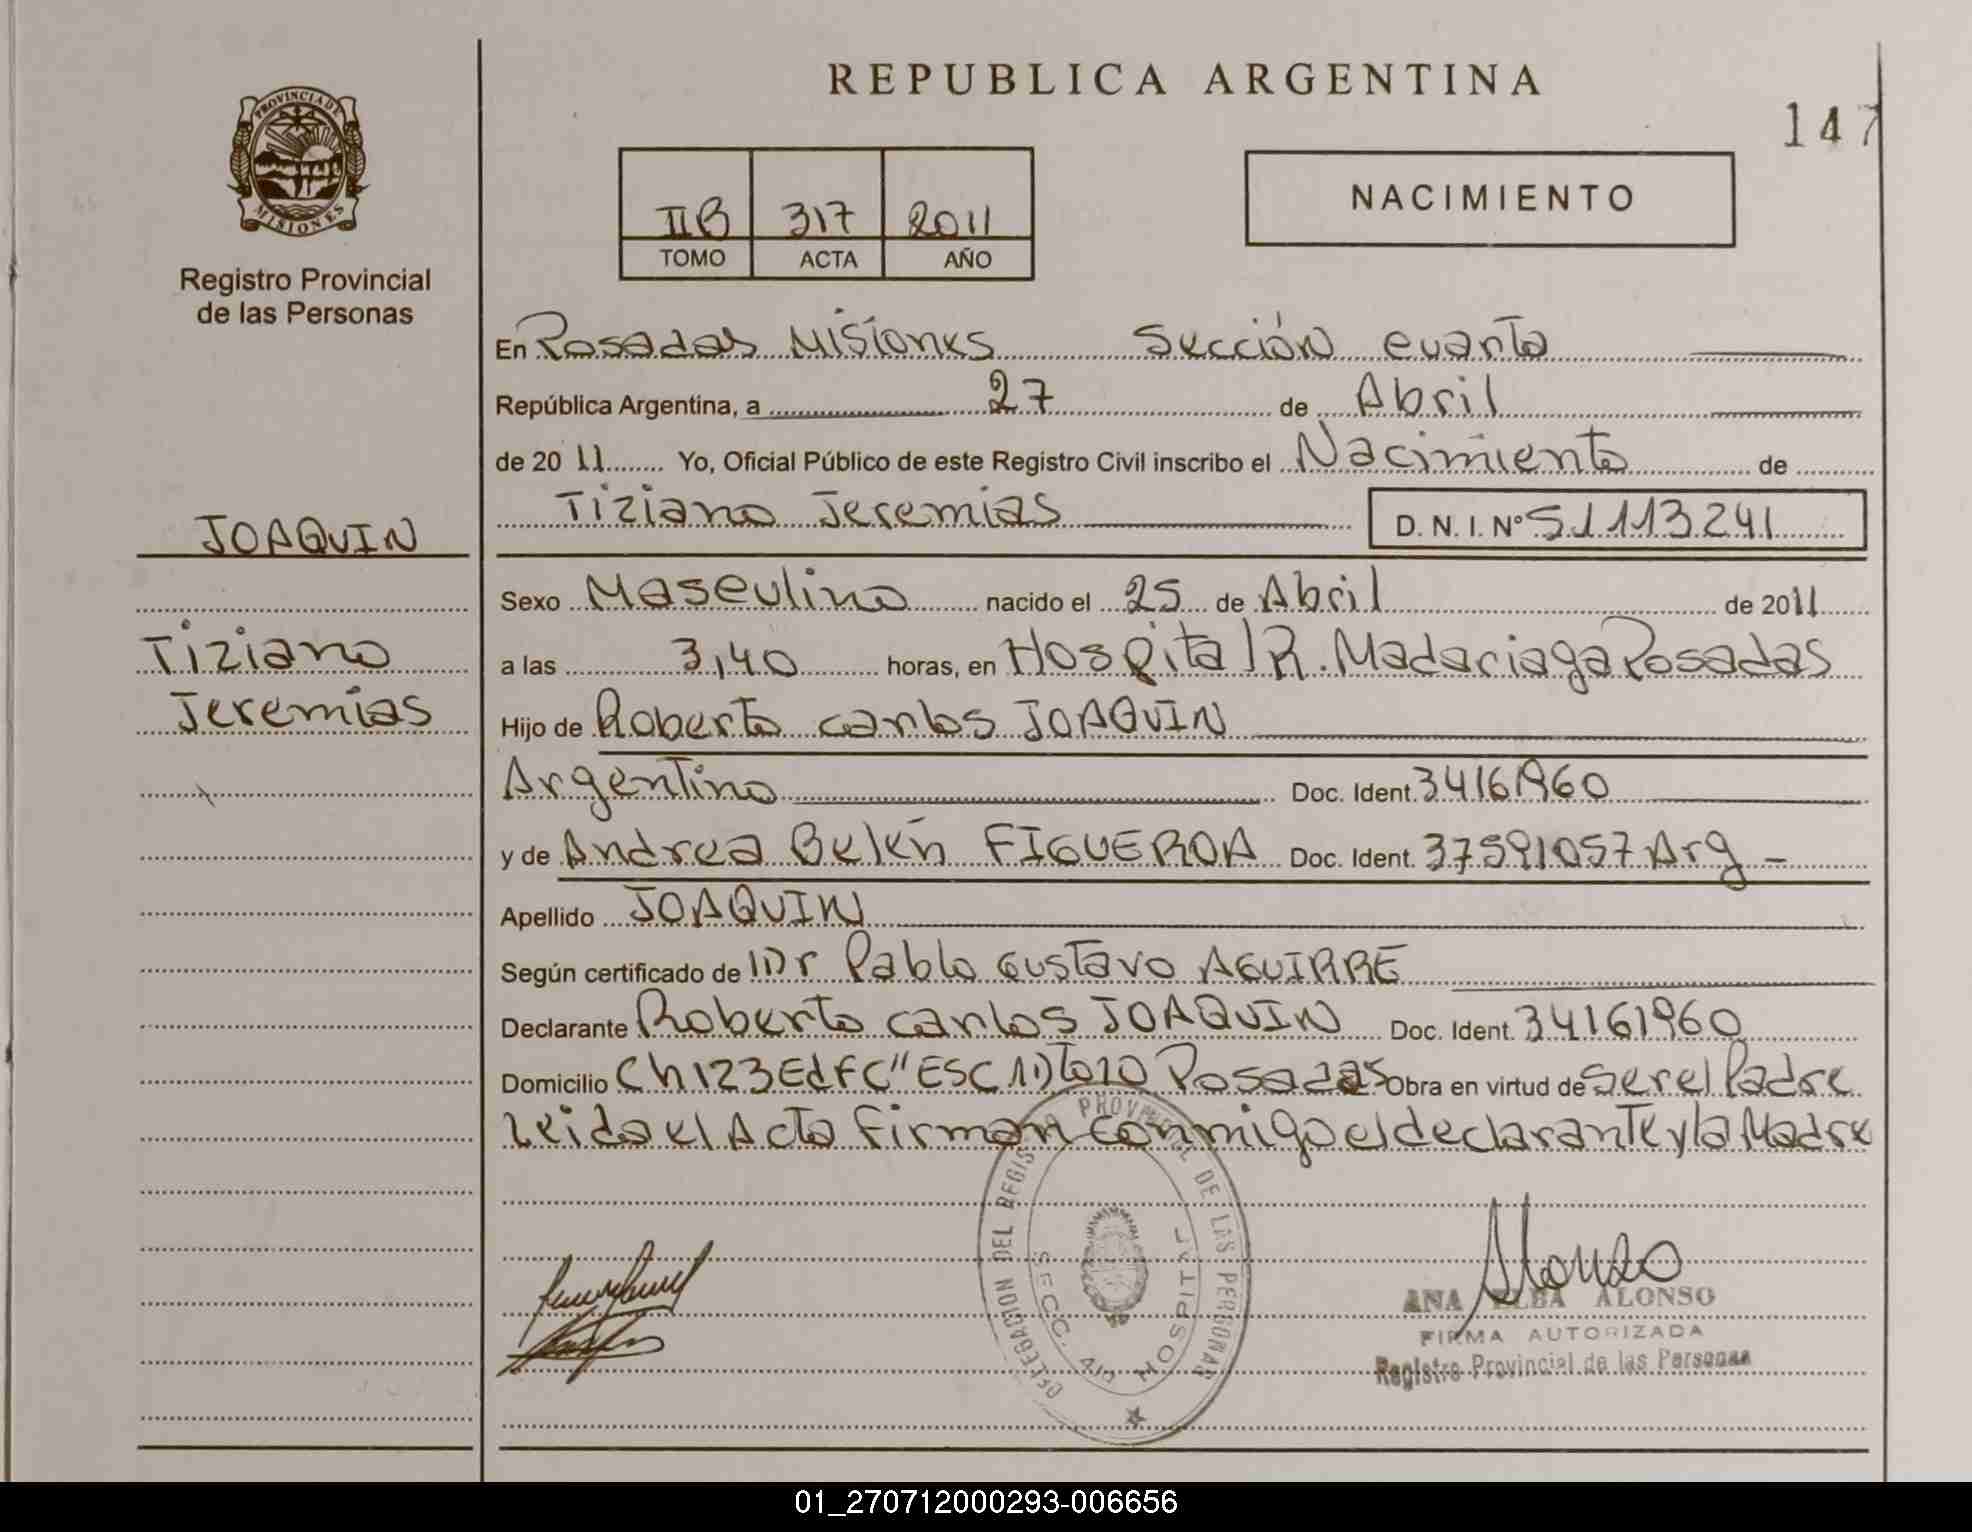 REPUBLICA ARGENTINA
147
PROVINCIA DE
MISIONES
Registro Provincial
de las Personas
IIB 317 2011
TOMO ACTA AÑO
NACIMIENTO
En Posadas Misiones Sección cuarta
República Argentina, a 27 de Abril
de 2011 Yo, Oficial Público de este Registro Civil inscribo el Nacimiento de
Tiziano Jeremias D. N. I. Nº 51113241
JOAQUIN
Tiziano
Jeremias
Sexo Masculino nacido el 25 de Abril de 2011
a las 3,40 horas, en Hospital R. Madariaga Posadas
Hijo de Roberto Carlos JOAQUIN
Argentino Doc. Ident. 34161960
y de Andrea Belén FIGUEROA Doc. Ident. 37591057 Arg -
Apellido JOAQUIN
Según certificado de Dr Pablo Gustavo AGUIRRE
Declarante Roberto Carlos JOAQUIN Doc. Ident. 34161960
Domicilio Ch 123 Edf C" ESC 1 Dto 10 Posadas Obra en virtud de ser el Padre
Leida el Acta Firman conmigo el declarante y la Madre
DELEGACION DEL REGISTRO PROVINCIAL DE LAS PERSONAS
SECC. 4ta HOSPITAL
Alonso
ANA ELBA ALONSO
FIRMA AUTORIZADA
Registro Provincial de las Personas
01_270712000293-006656